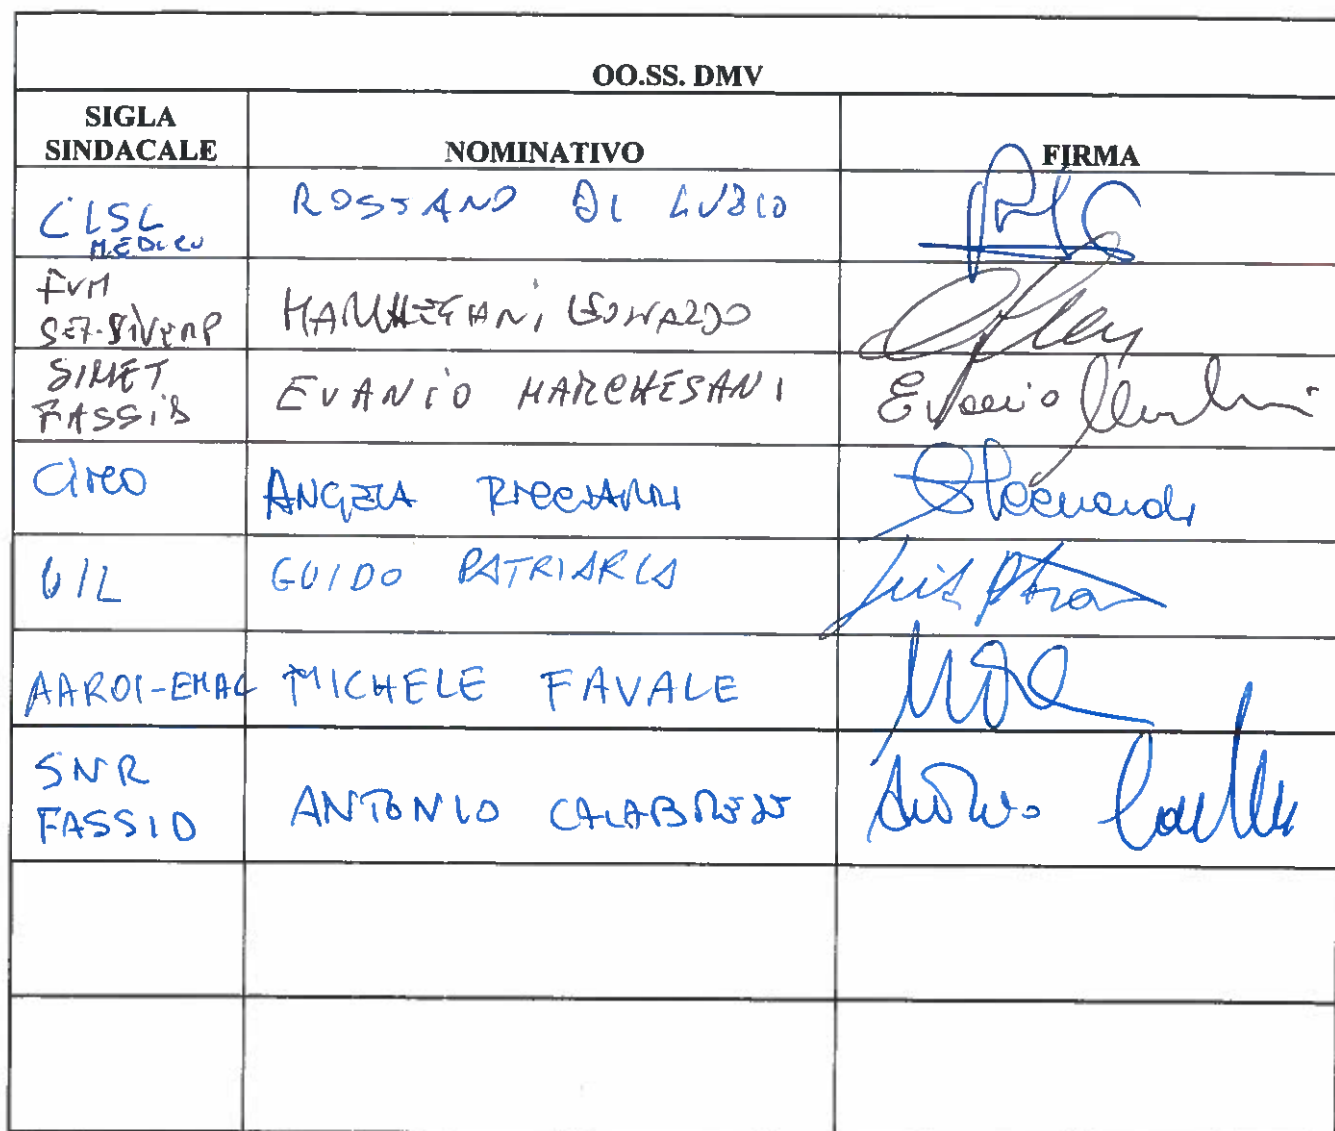 OO.SS. DMV
SIGLA
SINDACALE
NOMINATIVO
FIRMA
CISL
MEDICI
ROSSANO DI LUBIO
FVM
MARCHEGANI LEONARDO
SIMET
FASSID
EVANIO MARCHESANI
Evanio
CIMO
ANGELA RICCIARDI
UIL
GUIDO PATRIARCA
AAROI-EMAC
MICHELE FAVALE
SNR
FASSID
ANTONIO CALABRESE
Antonio